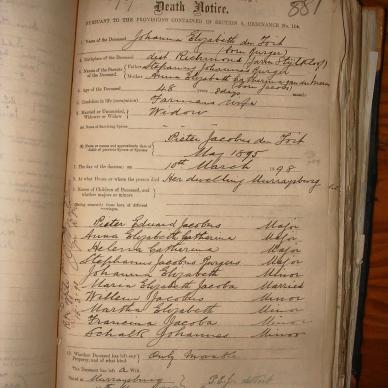 881
Death Notice.
PURSUANT TO THE PROVISIONS CONTAINED IN SECTION 9, ORDINANCE No. 104.
1. Name of the Deceased, Johanna Elizabeth du Toit
(born Burger)
2. Birthplace of the Deceased, dist Richmond (farm
3. Names of the Parents of the Deceased, Father Stephanus Johannes
Mother Anna Elizabeth Catherina
(born Jacobs)
4. Age of the Deceased, 48 years days months
5. Condition in life (occupation) Farmers Wife
6. Married or Unmarried, Widower or Widow Widow
(a) Name of Surviving Spouse
Pieter Jacobus du Toit
(b) Name or names and approximate date of death of previous Spouse or Spouses
May 1895
7. The day of the decease; on 10th March 1898
8. At what House or where the person died Her dwelling Murraysburg
9. Names of Children of Deceased, and whether majors or minors
Pieter Eduard Jacobus Major
Anna Elizabeth Catherina Major
Helena Catherina Major
Stephanus Jacobus Major
Johanna Elizabeth Minor
Maria Elizabeth Jacoba Married
Willem Jacobus Minor
Martha Elizabeth Minor
Francina Jacoba Minor
Schalk Johannes Minor
10. Whether Deceased has left any Property, and of what kind Only Movable
The Deceased has left a Will.
Dated at Murraysburg